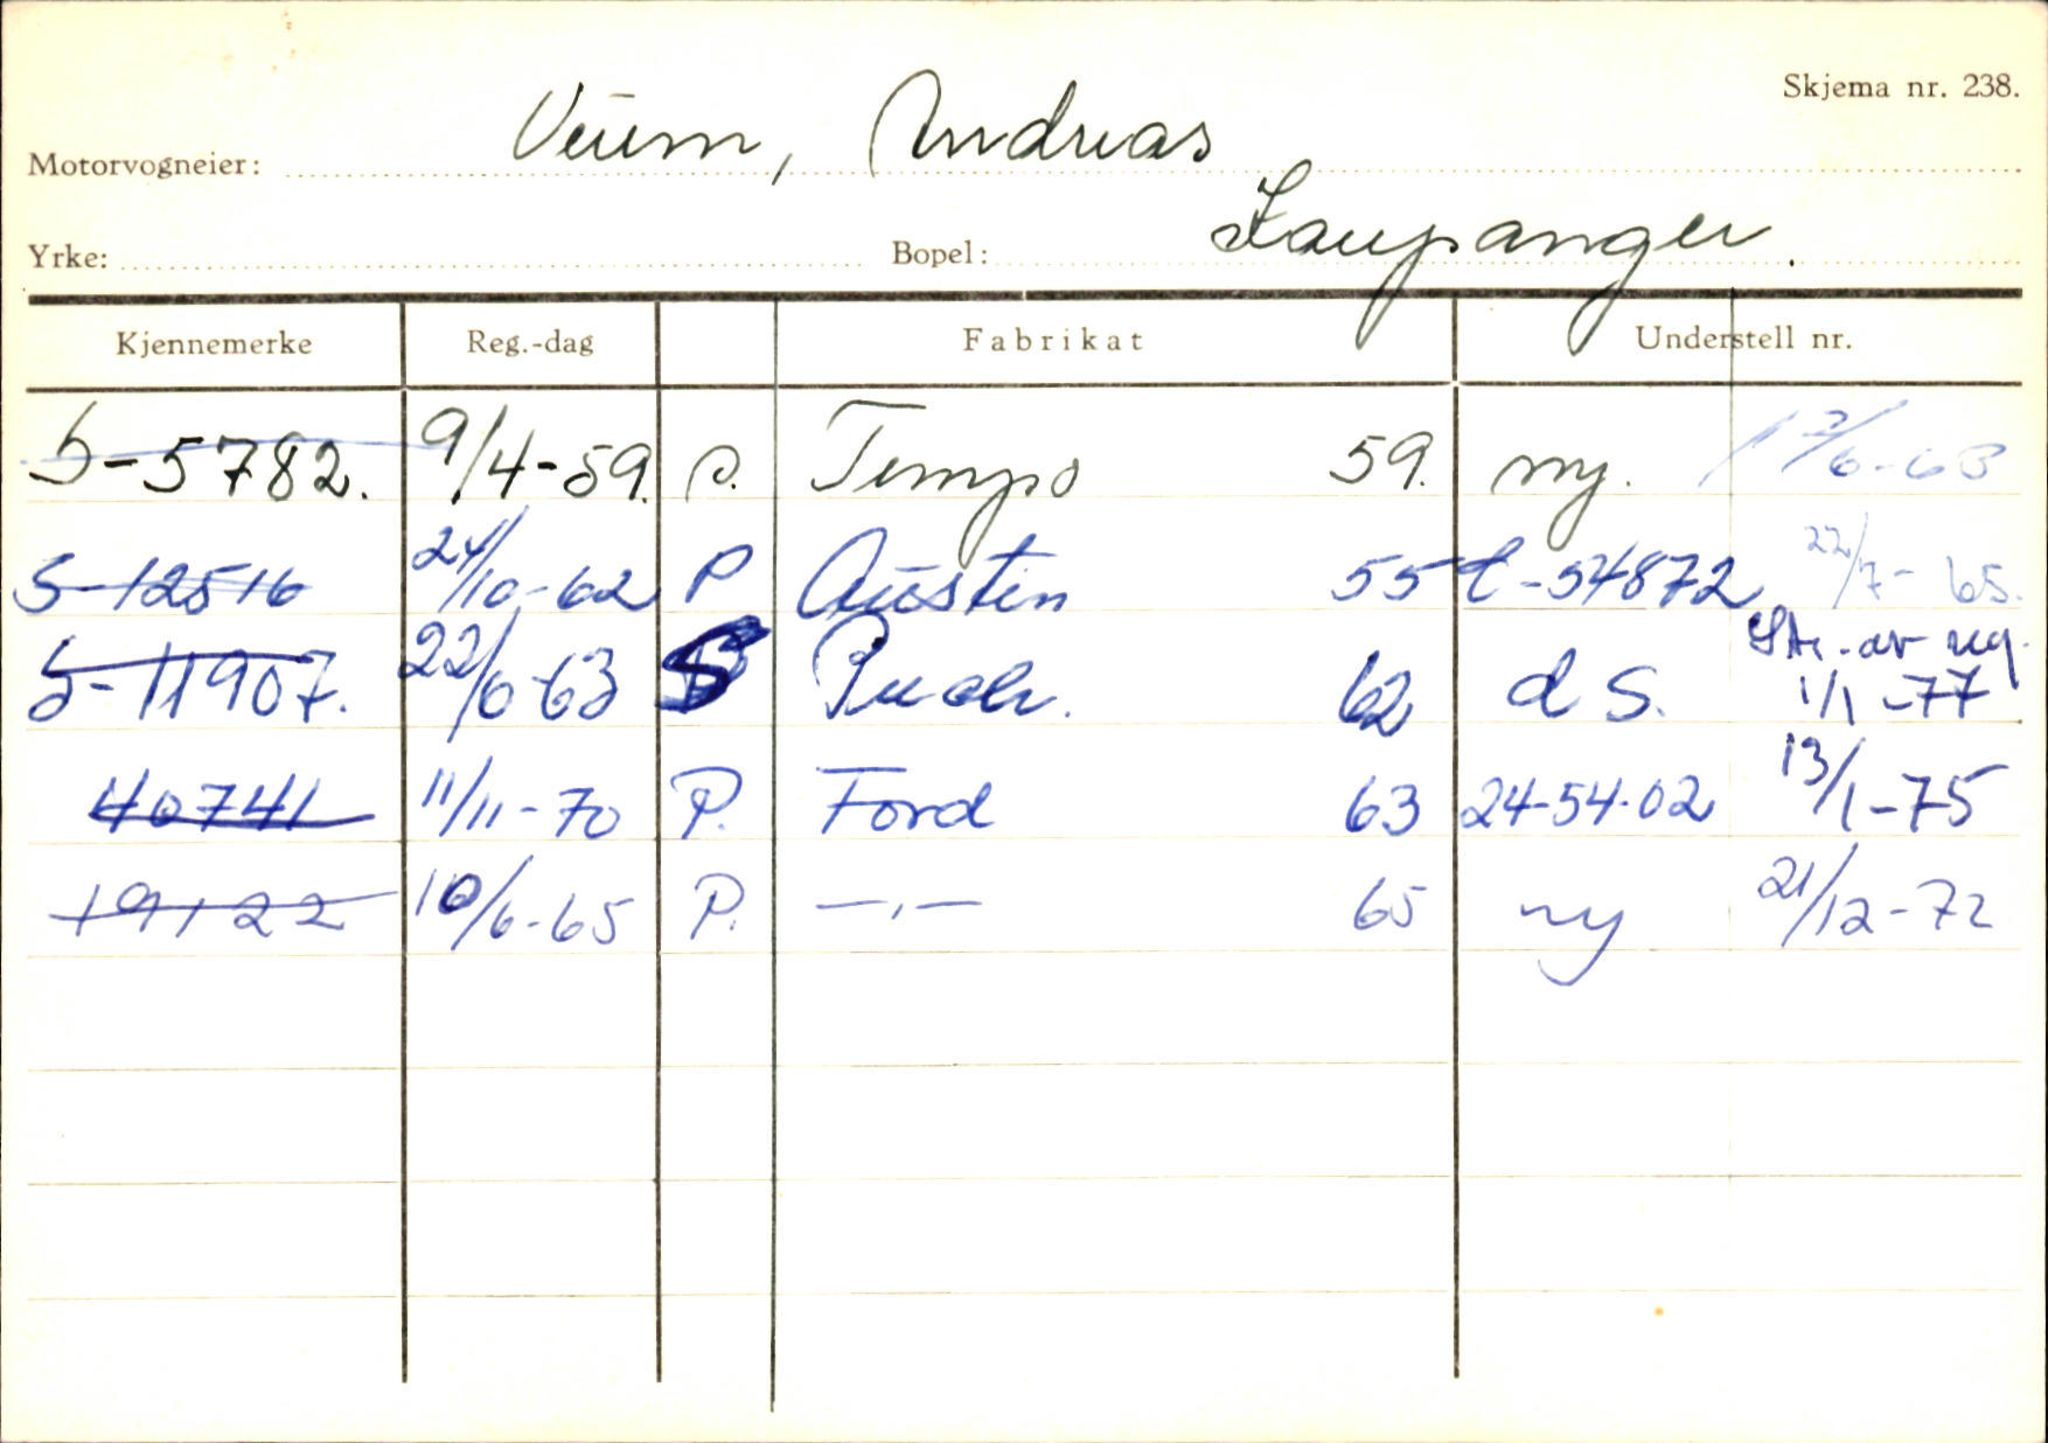 Skjema nr. 238.
Motorvogneier: Veum, Andreas
Yrke: Bopel: Kaupanger.
Kjennemerke Reg.-dag Fabrikat Understell nr.
S-5782. 9/4-59. P. Tempo 59. ny. 17/6-63
S-12516 24/10-62 P Austin 55 C-54872 22/7-65.
S-11907. 22/6-63 S Puch. 62 d S. Str. av reg. 1/1-77
40741 11/11-70 P. Ford 63 24-54-02 13/1-75
19122 10/6-65 P. —,— 65 ny 21/12-72